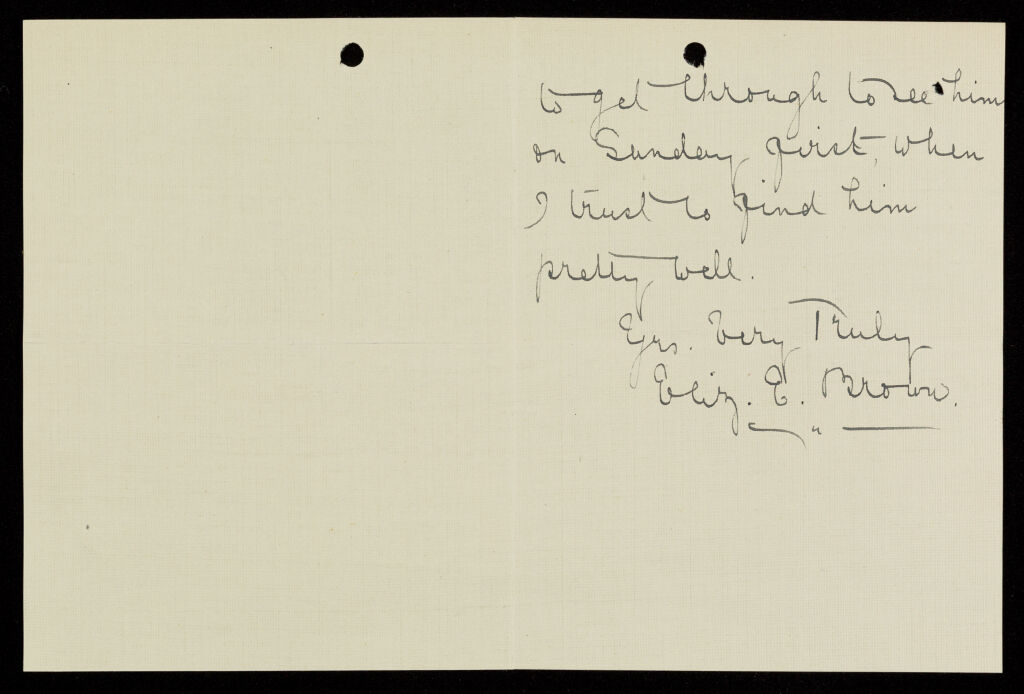 to get through to see him
on Sunday first, when
I trust to find him
pretty well.
Yrs. Very Truly
Eliz. E. Brown.